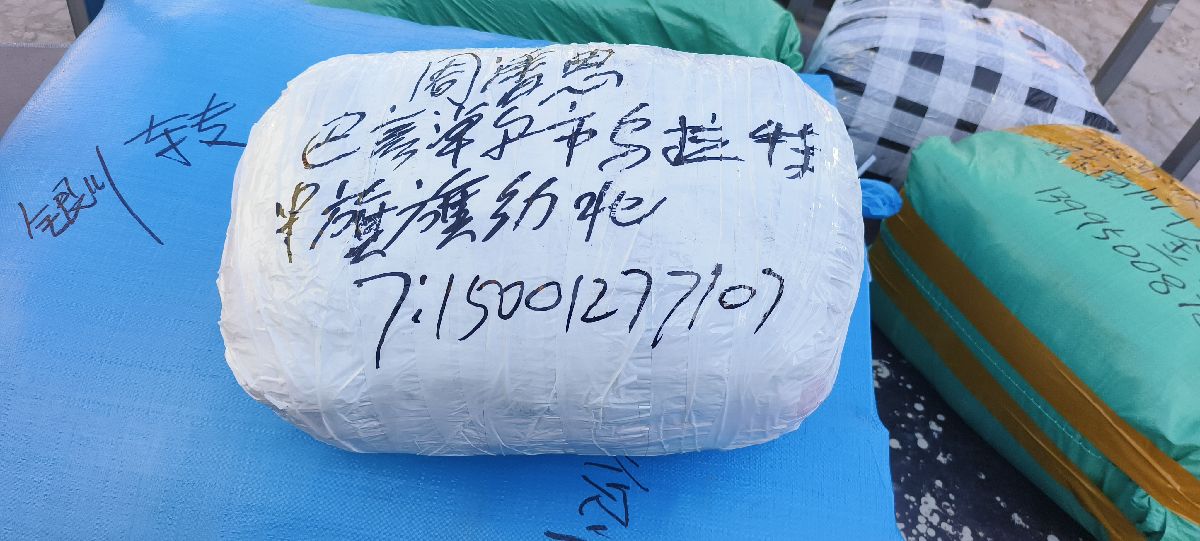 周清思
巴彦淖尔市乌拉特
中旗旗幼儿
T:15001277107
银川 转
13995008